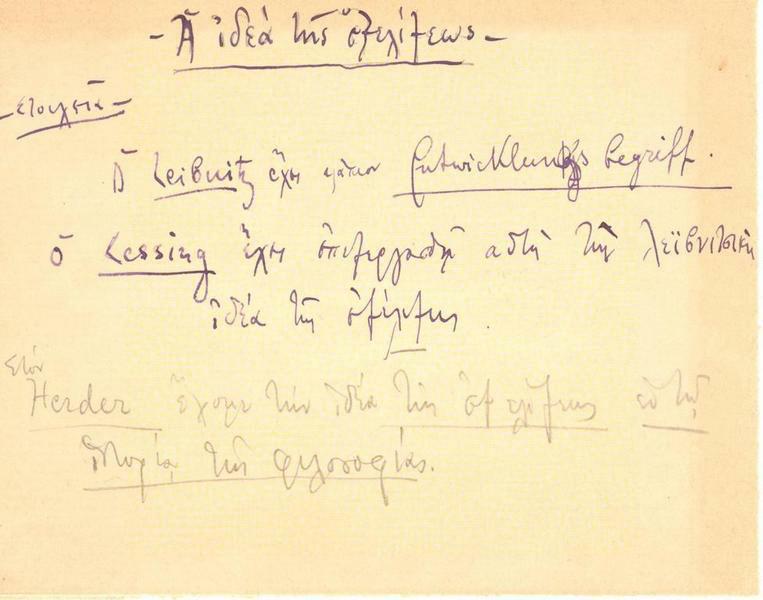 - Ἡ ἰδέα τῆς ἐξελίξεως -
- στοιχεῖα -
Ὁ Leibnitz ἔχει Entwicklungsbegriff.
ὁ Lessing ἔχει ἐπεξεργασθῆ αὐτὴ τὴν λεϊβνιτσικὴ
ἰδέα τῆς ἐξελίξεως.
Στὸν
Herder ἔχομε τὴν ἰδέα τῆς ἐξελίξεως ἐν τῇ
ἱστορίᾳ τῆς φιλοσοφίας.